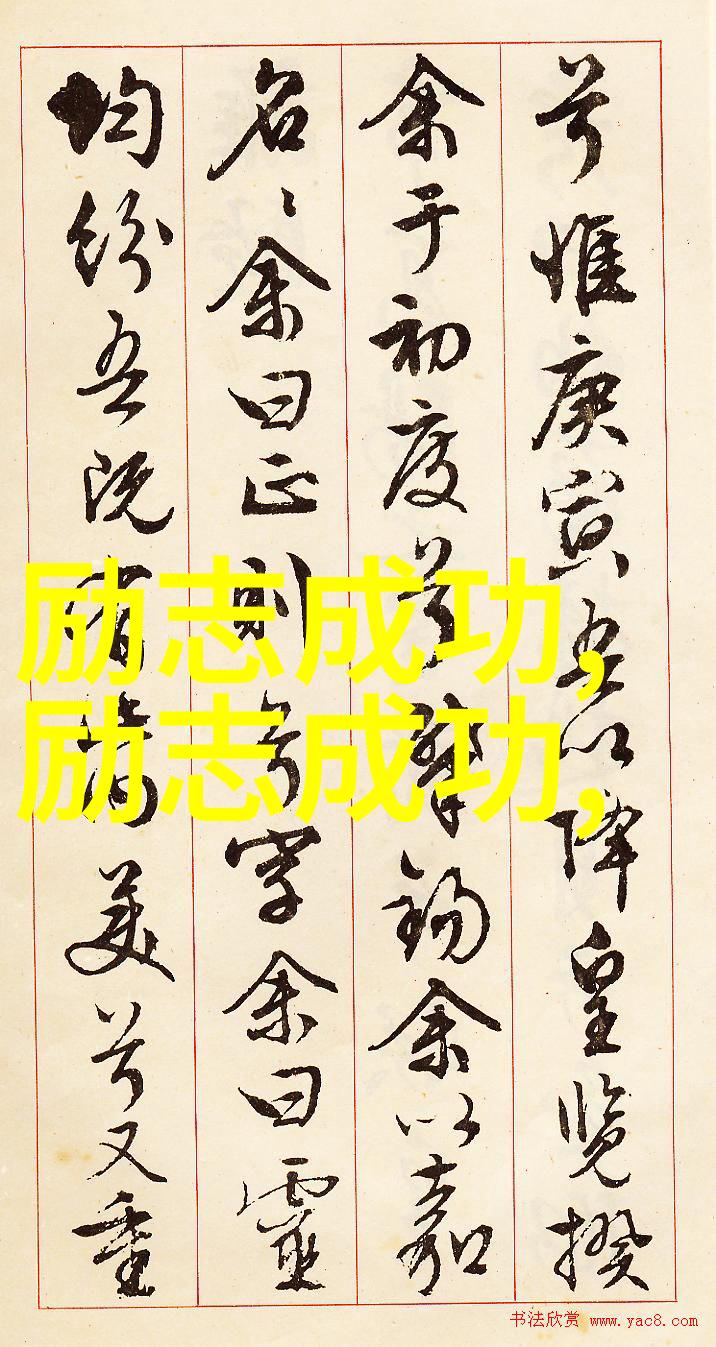 兮惟庚寅吾以降皇覽揆
余于初度兮肇錫余以嘉
名〻余曰正則兮字余曰靈
均紛吾既有此内美兮又重
励志成功,
励志成功,
书法欣赏 www.yac8.com